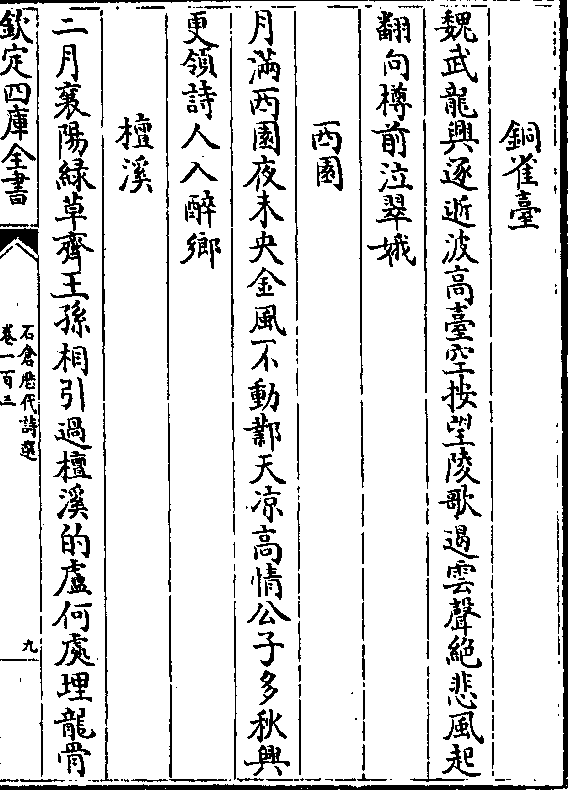 銅雀臺
魏武龍興逐逝波高臺空按望陵歌遏雲聲絶悲風起
翻向樽前泣翠娥
西園
月滿西園夜未央金風不動鄴天凉高情公子多秋興
更領詩人入醉鄉
檀溪
二月襄陽緑草齊王孫相引過檀溪的盧何處埋龍骨
欽定四庫全書
石倉歴代詩選
卷一百三
九